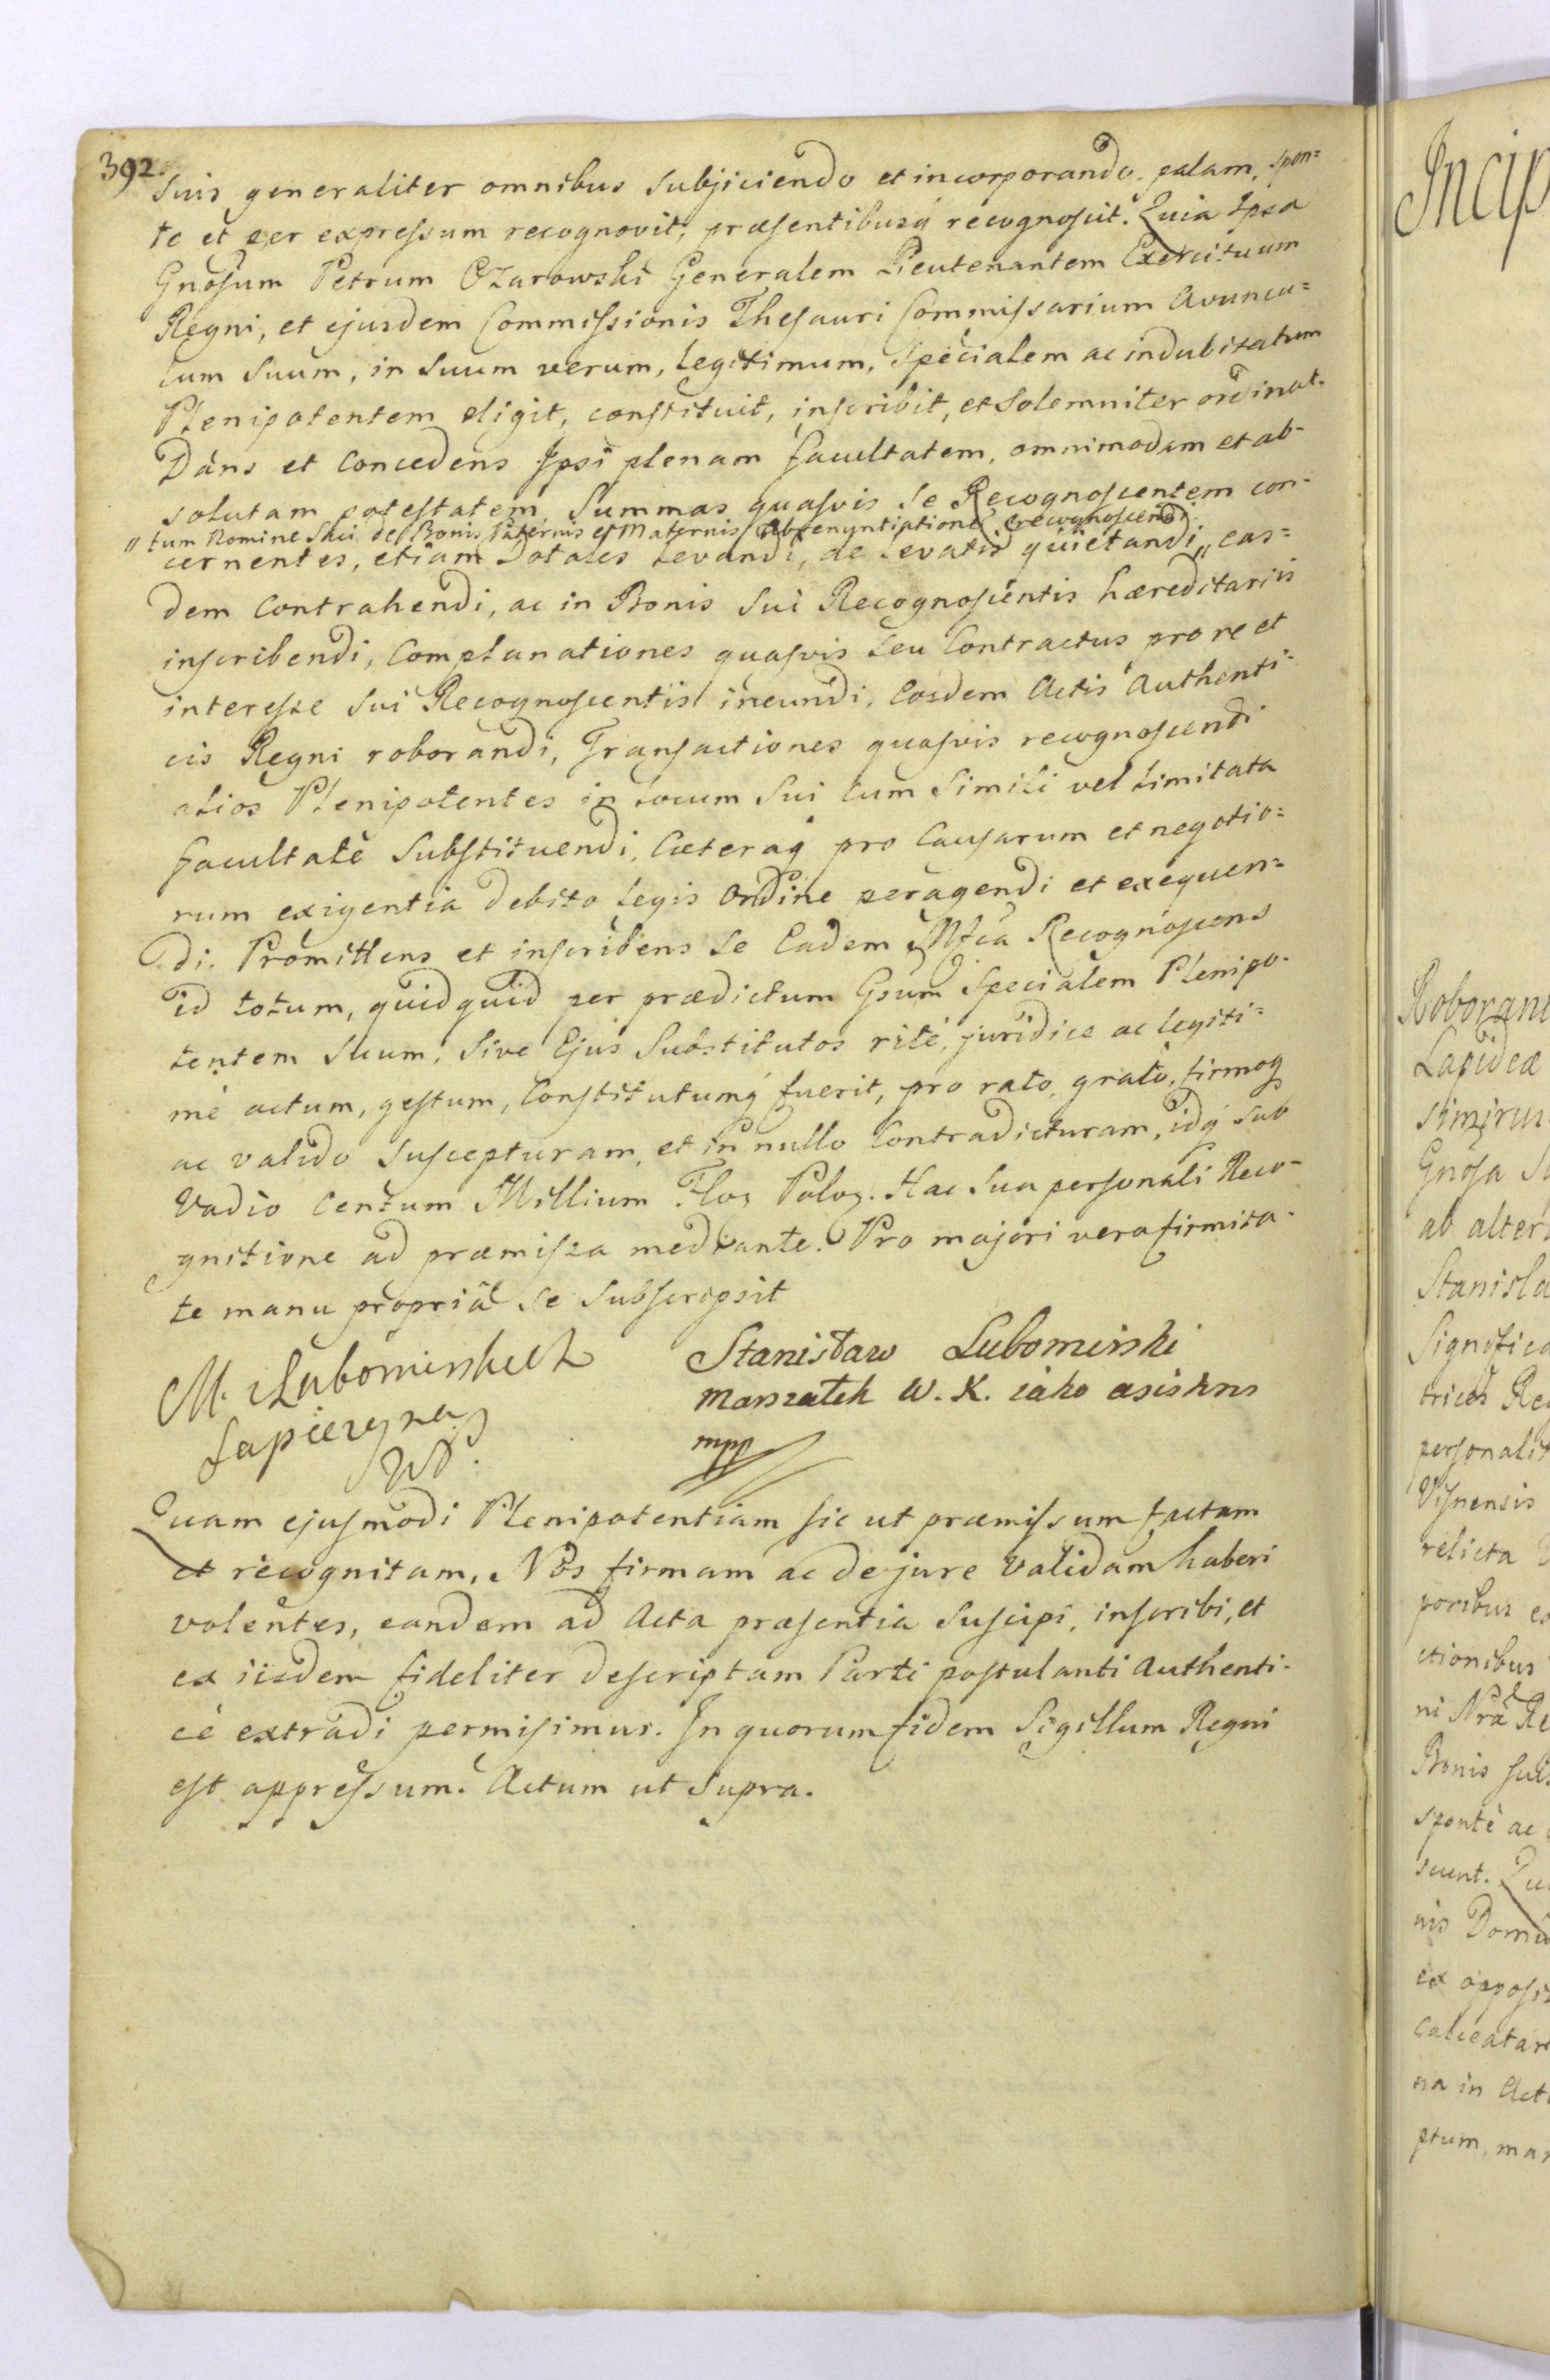 392.
suis generaliter omnibus subjiciendo et incorporando. palam, spon=
te et per expressum recognovit, præsentibusq recognoscit. Quia Ipsa
Gnosum Petrum Ozarowski Generalem Lieutenantem Exercituum
Regni, et ejusdem Commissionis Thesauri Commissarium Avuncu=
lum suum, in suum verum, legitimum, specialem ac indubitatum
Plenipotentem eligit, constituit, inscribit, et solemniter ordinat.
Dans et concedens Ipsi plenam facultatem, omnimodam et ab-
solutam potestatem, Summas quasvis se Recognoscentem con-
„ tum Nomine Sui de Bonis Paternis et Maternis Abrenuntiatione recognoscendi
cernentes, etiam Dotales levandi, de levatis quietandi „ eas=
dem contrahendi, ac in Bonis Sui Recognoscentis hæreditariis
inscribendi, Complanationes quasvis seu Contractus pro re et
interesse sui Recognoscentis ineundi, Eosdem Actis Authenti-
cis Regni roborandi, Transactiones quasvis recognoscendi
alios Plenipotentes in locum Sui cum simili vel limitata
facultate substituendi, Cæteraq pro Causarum et negotio=
rum exigentia debito legis ordine peragendi et exequen=
di. Promittens et inscribens se Eadem Mfca Recognoscens
id totum, quidquid per prædictum Gsum Specialem Plenipo-
tentem suum, sive Ejus Substitutos ritè, juridice ac legiti=
mè actum, gestum, Constitutumq fuerit, pro rato, grato, firmoq
ac valido suscepturam, et in nullo Contradicturam, idq sub
Vadio Centum Millium Flor Polor. Hac sua personali Reco-
gnitione ad præmissa mediante. Pro majori vero firmita-
te manu propriâ se subscripsit
M. Lubomirskich
Sapiezyna
Stanisław Lubomirski
Marszałek W. K. iako asistens
mpp
Quam ejusmodi Plenipotentiam sic ut præmissum factam
et recognitam, Nos firmam ac de jure validam haberi
volentes, eandem ad Acta præsentia suscipi, inscribi, et
ex iisdem fideliter descriptam Parti postulanti Authenti-
cè extradi permisimus. In quorum fidem Sigillum Regni
est appressum. Actum ut supra.
Incip
Roborani
Lapideæ
Gnosa
ab alter
Stanisla
Significa
trices Re
personalit
relicta
poribus
ctionibus
ni Nrã Re
Bonis suis
spontè ac
scunt. Qu
ex opposi
Calceatar
na in Act
ptum, man